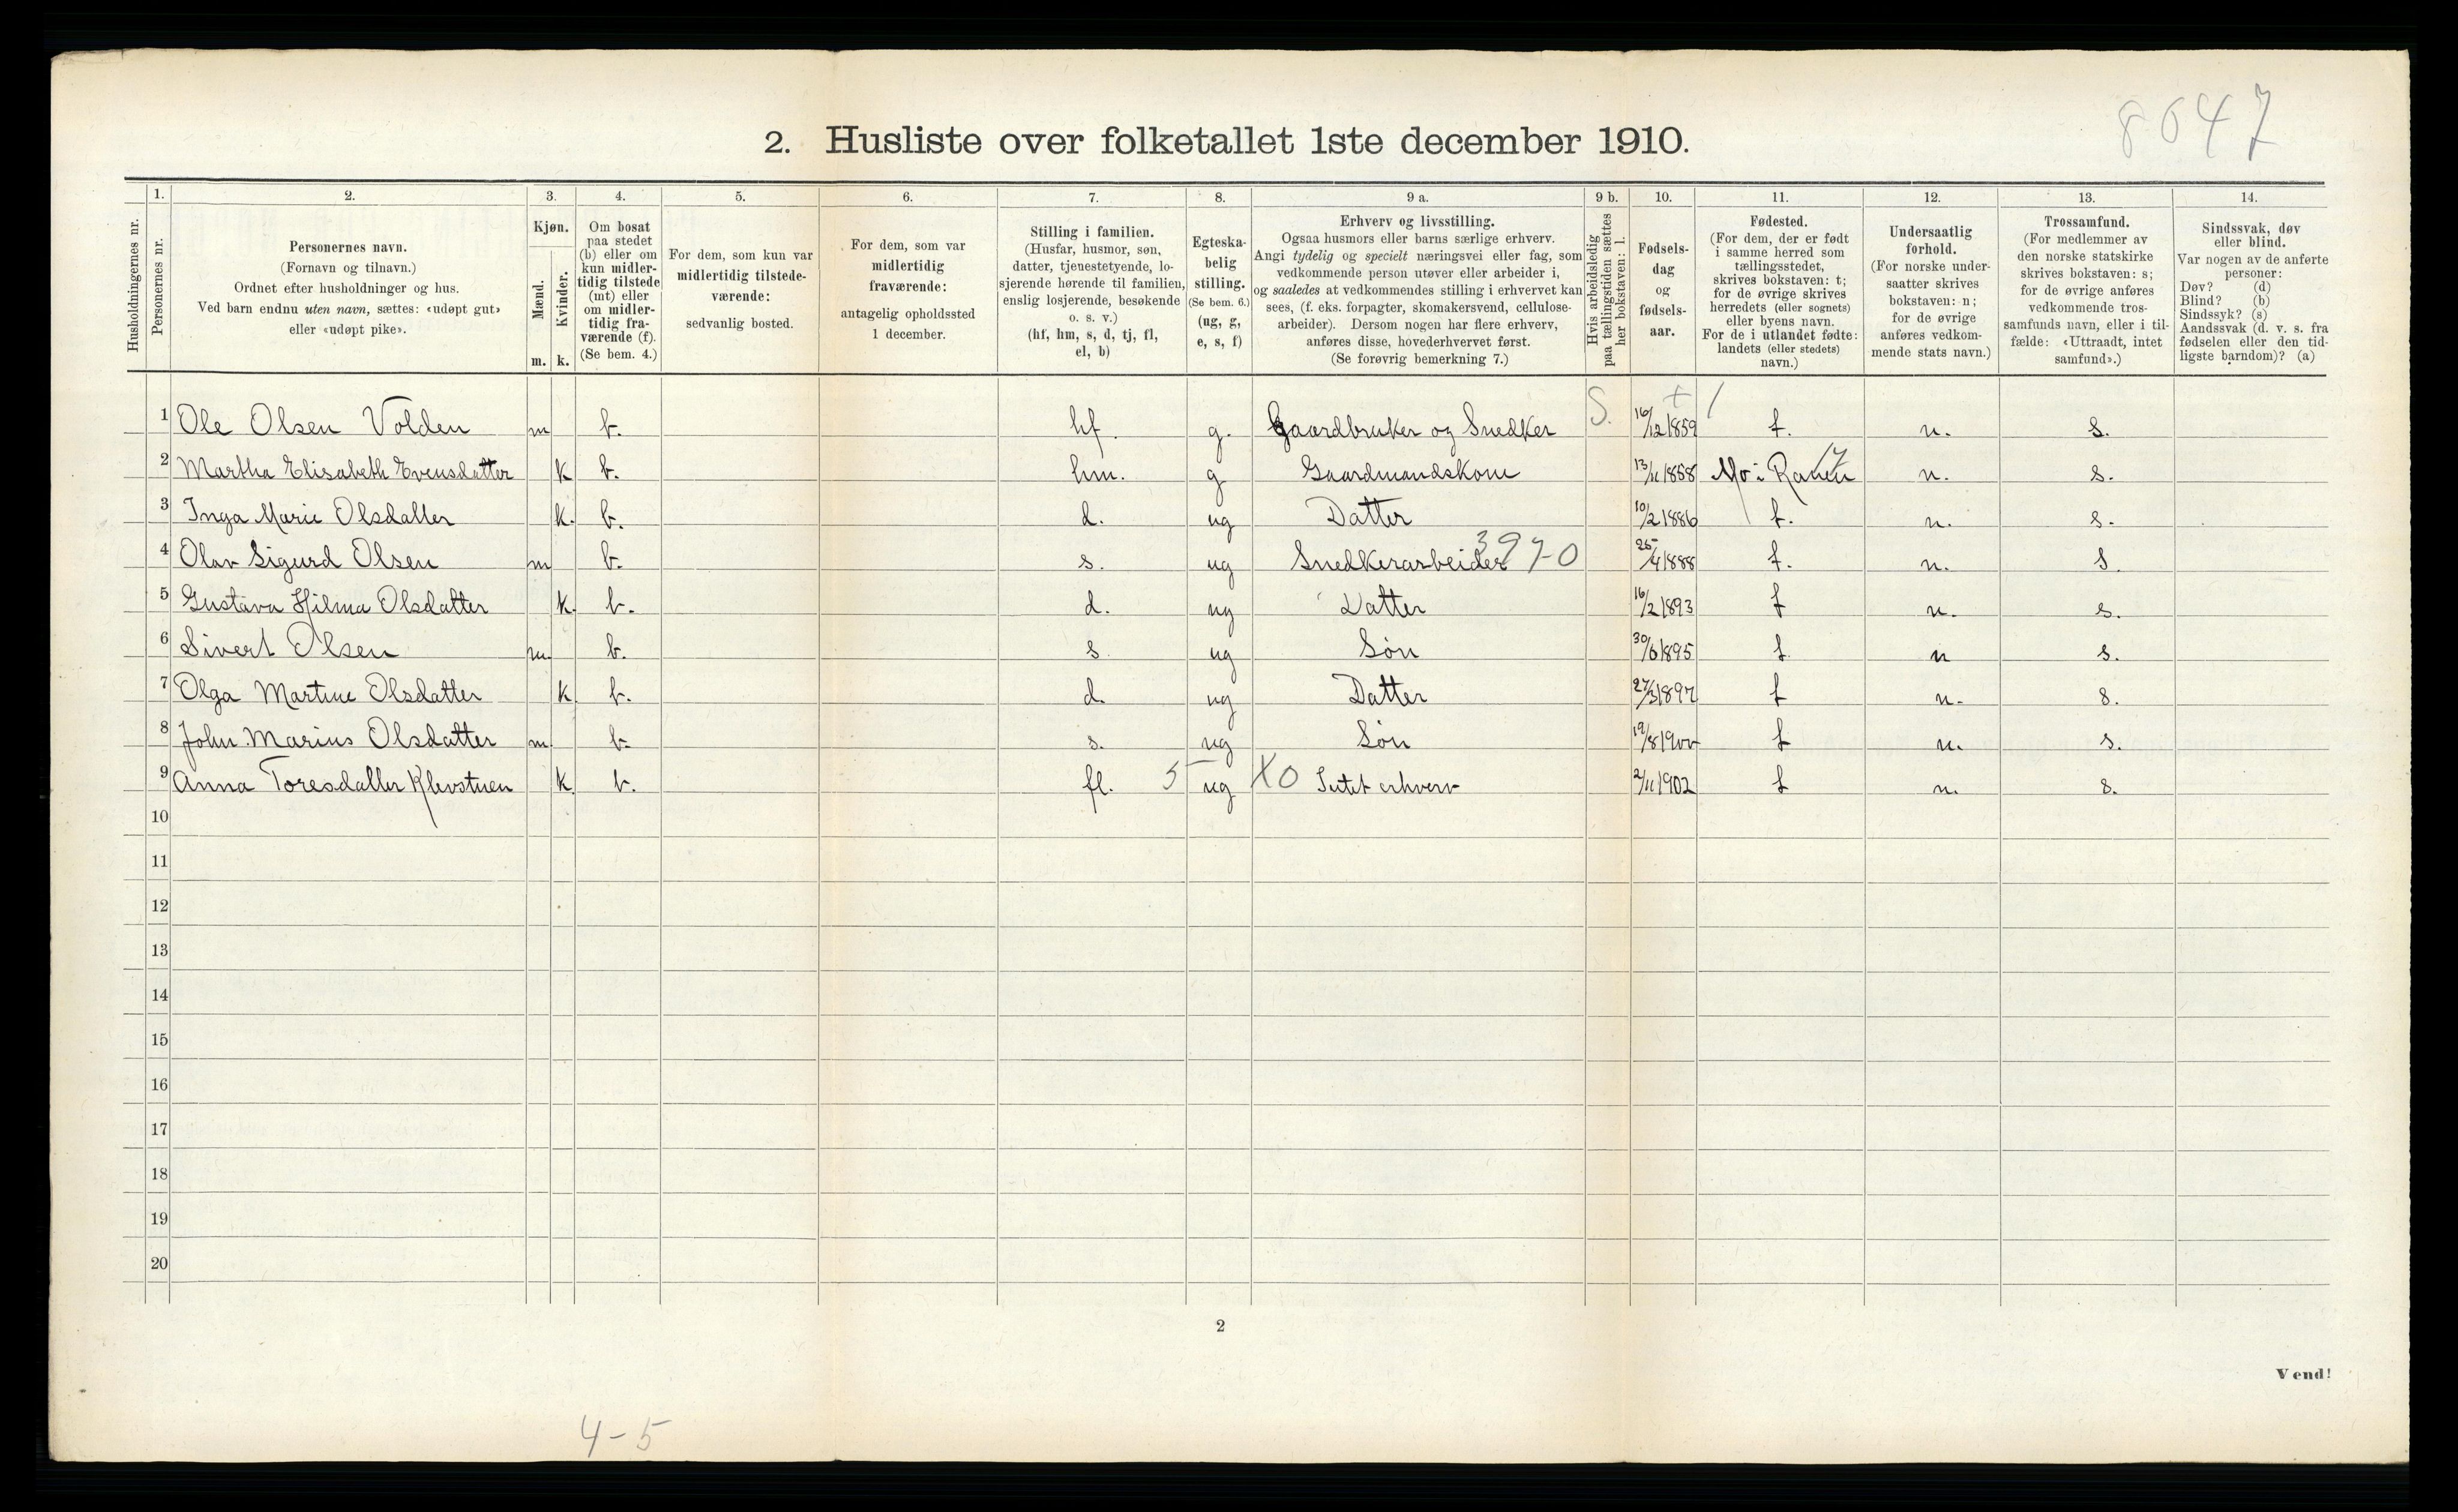 8647
2. Husliste over folketallet 1ste december 1910.
Husholdningernes nr.
1.
Personernes nr.
2.
Personernes navn.
(Fornavn og tilnavn.)
Ordnet efter husholdninger og hus.
Ved barn endnu uten navn, sættes: «udøpt gut»
eller «udøpt pike».
3.
Kjøn.
Mænd.
Kvinder.
m. k.
4.
Om bosat
paa stedet
(b) eller om
kun midler-
tidig tilstede
(mt) eller
om midler-
tidig fra-
værende (f).
(Se bem. 4.)
5.
For dem, som kun var
midlertidig tilstede-
værende:
sedvanlig bosted.
6.
For dem, som var
midlertidig
fraværende:
antagelig opholdssted
1 december.
7.
Stilling i familien.
(Husfar, husmor, søn,
datter, tjenestetyende, lo-
sjerende hørende til familien,
enslig losjerende, besøkende
o. s. v.)
(hf, hm, s, d, tj, fl,
el, b)
8.
Egteska-
belig
stilling.
(Se bem. 6.)
(ug, g,
e, s, f)
9 a.
Erhverv og livsstilling.
Ogsaa husmors eller barns særlige erhverv.
Angi tydelig og specielt næringsvei eller fag, som
vedkommende person utøver eller arbeider i,
og saaledes at vedkommendes stilling i erhvervet kan
sees, (f. eks. forpagter, skomakersvend, cellulose-
arbeider). Dersom nogen har flere erhverv,
anføres disse, hovederhvervet først.
(Se forøvrig bemerkning 7.)
9 b.
Hvis arbeidsledig
paa tællingstiden sættes
her bokstaven: l.
10.
Fødsels-
dag
og
fødsels-
aar.
11.
Fødested.
(For dem, der er født
i samme herred som
tællingsstedet,
skrives bokstaven: t;
for de øvrige skrives
herredets (eller sognets)
eller byens navn.
For de i utlandet fødte:
landets (eller stedets)
navn.)
12.
Undersaatlig
forhold.
(For norske under-
saatter skrives
bokstaven: n;
for de øvrige
anføres vedkom-
mende stats navn.)
13.
Trossamfund.
(For medlemmer av
den norske statskirke
skrives bokstaven: s;
for de øvrige anføres
vedkommende tros-
samfunds navn, eller i til-
fælde: «Uttraadt, intet
samfund».)
14.
Sindssvak, døv
eller blind.
Var nogen av de anførte
personer:
Døv? (d)
Blind? (b)
Sindssyk? (s)
Aandssvak (d. v. s. fra
fødselen eller den tid-
ligste barndom)? (a)
1 Ole Olsen Volden m b. hf. g. Gaardbruker og Snedker S. 16/12 1859 t. n. s.
2 Martha Elisabeth Evensdatter k b. hm. g Gaardmandskone 13/11 1858 Mo i Ranen n. s.
3 Inga Marie Olsdatter k. b. d. ug Datter 10/2 1886 t. n. s.
4 Olav Sigurd Olsen m b. s. ug Snedkerarbeider 25/4 1888 t. n. s
5 Gustava Hilma Olsdatter k. b. d. ug Datter 16/2 1893 t n. s.
6 Sivert Olsen m b. s. ug Søn 30/6 1895 t n s.
7 Olga Martine Olsdatter k b. d. ug Datter 27/3 1897 t n. s.
8 John Marius Olsdatter m b. s. ug Søn 19/8 1900 t n. s.
9 Anna Toresdatter Klevstuen k b. fl. 5 ug XO Intet erhverv 2/11 1902 t n. s.
10
11
12
13
14
15
16
17
18
19
20
2
Vend!
4-5